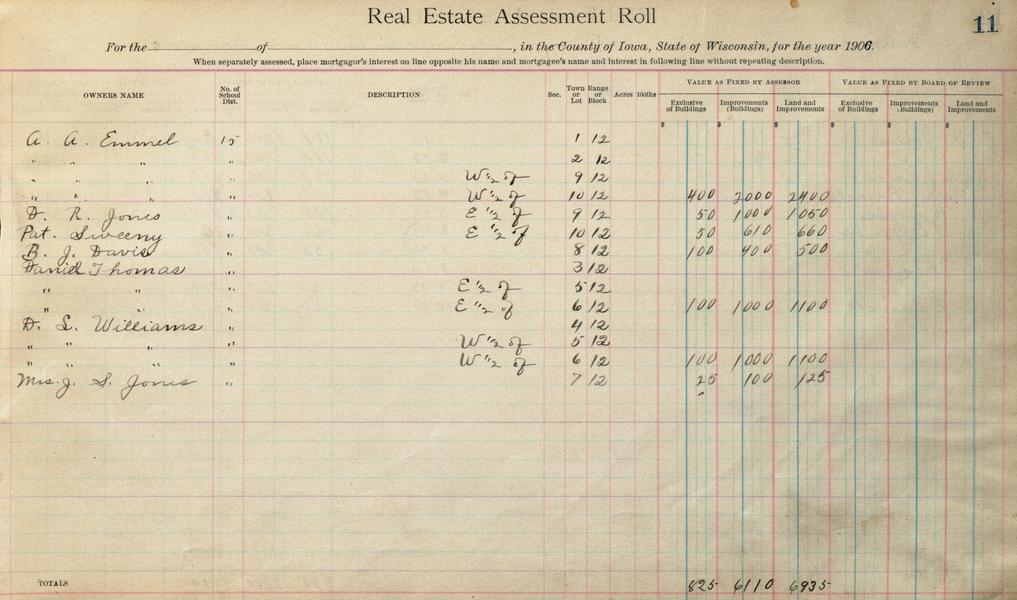 Real Estate Assessment Roll
11
For the of , in the County of Iowa, State of Wisconsin, for the year 1906.
When separately assessed, place mortgagor's interest on line opposite his name and mortgagee's name and interest in following line without repeating description.
VALUE AS FIXED BY ASSESSOR VALUE AS FIXED BY BOARD OF REVIEW
OWNERS NAME No. of School Dist. DESCRIPTION Sec. Town or Lot Range or Block Acres 100ths Exclusive of Buildings Improvements (Buildings) Land and Improvements Exclusive of Buildings Improvements (Buildings) Land and Improvements
$ $ $ $ $ $
A. A. Emmel 15 1 12
" " " " 2 12
" " " " W 1/2 of 9 12
" " " " W 1/2 of 10 12 400 2000 2400
D. R. Jones " E 1/2 of 9 12 50 1000 1050
Pat. Sweeny " E 1/2 of 10 12 50 610 660
B. J. Davis " 8 12 100 400 500
Daniel Thomas " 3 12
" " " E 1/2 of 5 12
" " " E 1/2 of 6 12 100 1000 1100
D. L. Williams " 4 12
" " " " W 1/2 of 5 12
" " " " W 1/2 of 6 12 100 1000 1100
Mrs. J. S. Jones " 7 12 25 100 125
TOTALS 825 6110 6935